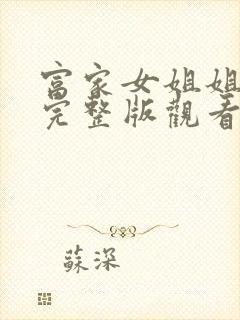 富家女姐姐
完整版觀看
蘇深